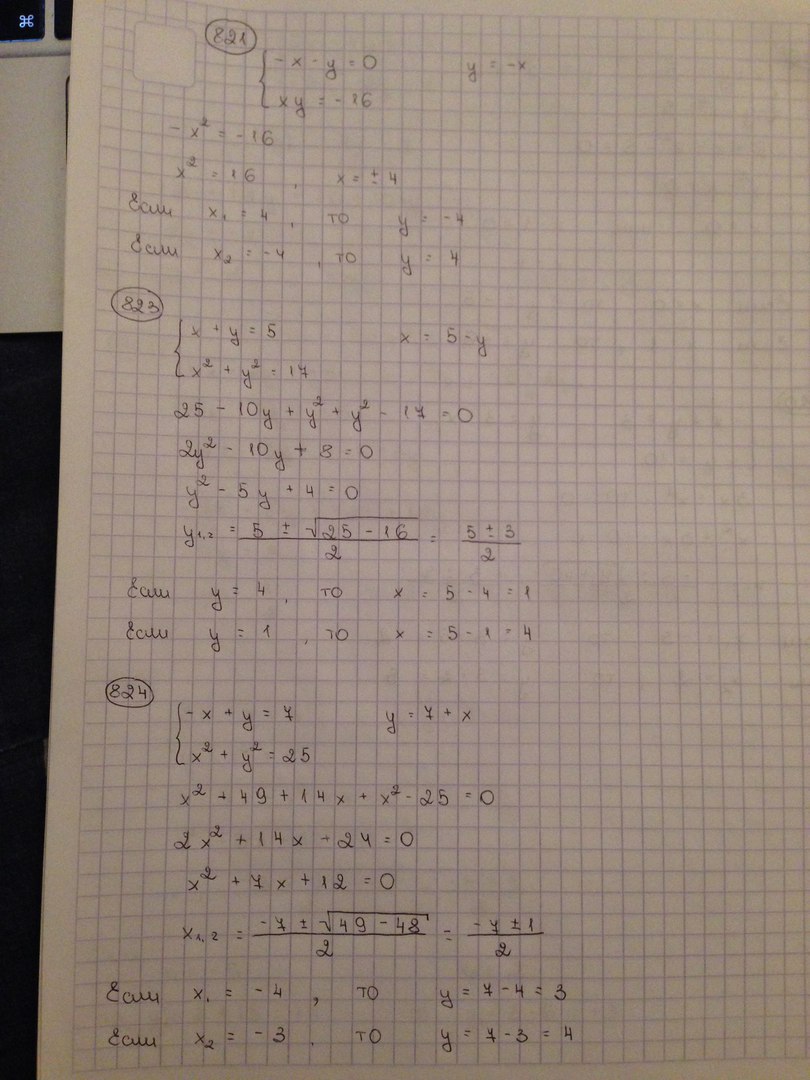 ⌘
821
{ -x - y = 0    y = -x
xy = -16
-x² = -16
x² = 16 , x = ± 4
Если x₁ = 4 , то y = -4
Если x₂ = -4 , то y = 4
823
{ x + y = 5    x = 5 - y
x² + y² = 17
25 - 10y + y² + y² - 17 = 0
2y² - 10y + 8 = 0
y² - 5y + 4 = 0
y₁,₂ = (5 ± √(25 - 16))/2 = (5 ± 3)/2
Если y = 4 , то x = 5 - 4 = 1
Если y = 1 , то x = 5 - 1 = 4
824
{ -x + y = 7    y = 7 + x
x² + y² = 25
x² + 49 + 14x + x² - 25 = 0
2x² + 14x + 24 = 0
x² + 7x + 12 = 0
x₁,₂ = (-7 ± √(49 - 48))/2 = (-7 ± 1)/2
Если x₁ = -4 , то y = 7 - 4 = 3
Если x₂ = -3 , то y = 7 - 3 = 4